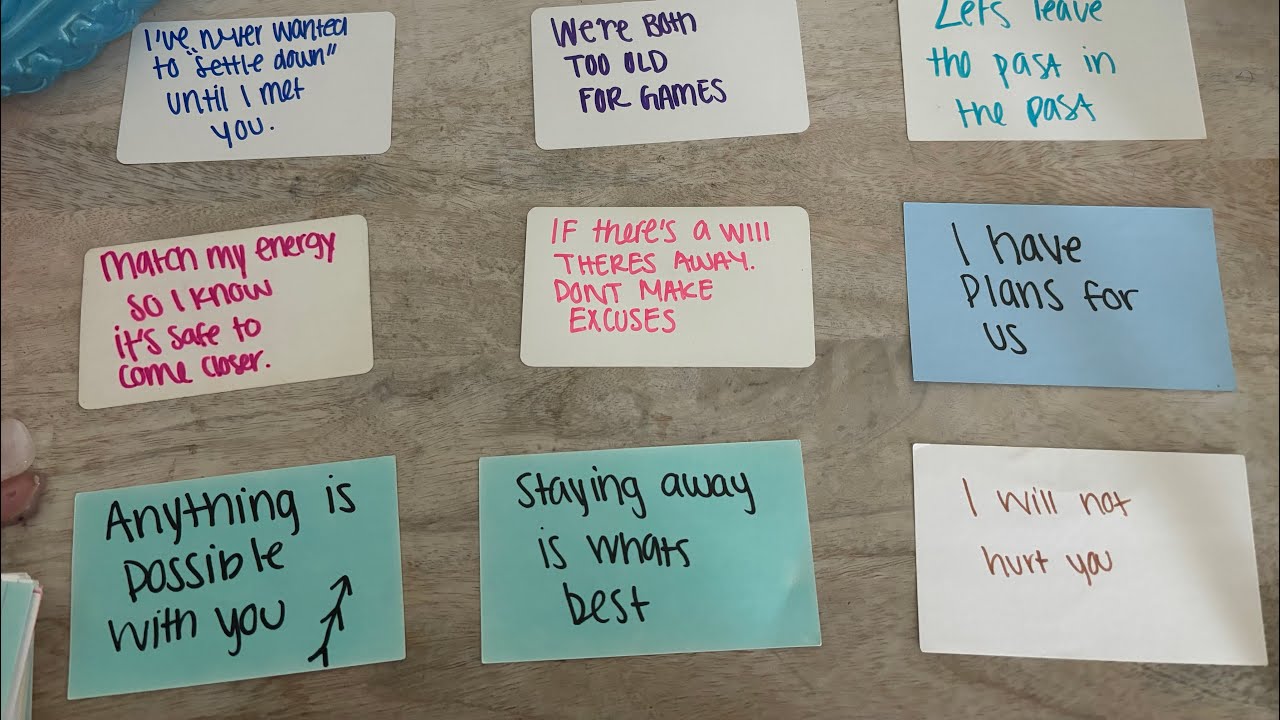 I've never wanted
to "settle down"
until I met
you.
WE'RE BOTH
TOO OLD
FOR GAMES
Lets leave
the past in
the past
Match my energy
so I know
it's safe to
come closer.
IF there's a WILL
THERES AWAY.
DONT MAKE
EXCUSES
I have
plans for
us
Anything is
possible
with you
Staying away
is whats
best
I will not
hurt you